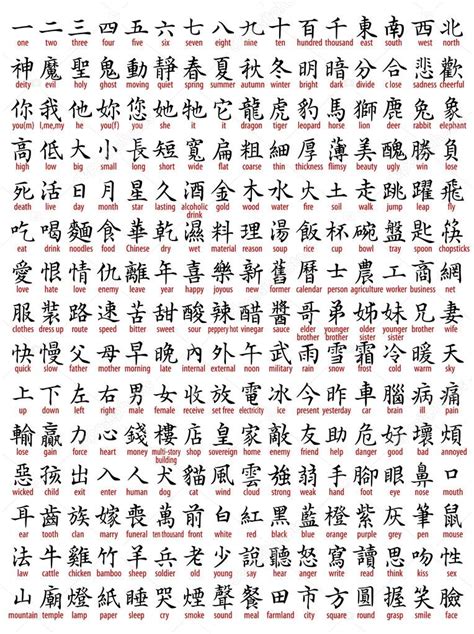 一 二 三 四 五 六 七 八 九 十 百 千 東 南 西 北
one two three four five six seven eight nine ten hundred thousand east south west north
神 魔 聖 鬼 動 靜 春 夏 秋 冬 明 暗 分 合 悲 歡
deity evil holy ghost moving quiet spring summer autumn winter bright dark divide close sadness cheerful
你 我 他 妳 您 她 牠 它 龍 虎 豹 馬 獅 鹿 兔 象
you(m) I,me,my he you(f) you she it it dragon tiger leopard horse lion deer rabbit elephant
高 低 大 小 長 短 寬 扁 粗 細 厚 薄 美 醜 勝 負
high low big small long short wide flat coarse thin thickness flimsy beauty ugly win lose
死 活 日 月 星 久 酒 金 木 水 火 土 走 跳 躍 飛
death live day month star lasting alcoholic drink gold wood water fire soil walk jump leap fly
吃 喝 麵 食 華 乾 濕 料 理 湯 飯 杯 碗 盤 匙 筷
eat drink noodles food Chinese dry wet material reason soup rice cup bowl plate spoon chopsticks
愛 恨 情 仇 離 年 喜 樂 新 舊 曆 士 農 工 商 網
love hate love enemy leave year happy happy new former calendar person agriculture worker business net
服 裝 路 速 苦 甜 酸 辣 醋 醬 哥 弟 姊 妹 兄 妻
clothes dress up route speed bitter sweet sour peppery hot vinegar sauce elder brother younger brother older sister younger sister brother wife
快 慢 父 母 早 晚 內 外 午 武 雨 雪 霜 冷 暖 天
quick slow father mother morning late internal external noon military rain snow frost cold warm sky
上 下 左 右 男 女 收 放 電 冰 今 昨 車 腦 病 痛
up down left right male female receive set free electricity ice present yesterday car brain ill pain
輸 贏 力 心 錢 樓 店 皇 家 敵 友 助 危 好 壞 煩
lose gain force heart money multi-story building shop sovereign home enemy friend help danger good bad annoyed
惡 孩 出 入 人 犬 貓 風 雲 強 弱 手 腳 眼 鼻 嘴
wicked child exit enter human dog cat wind cloud strong weak hand foot eye nose mouth
耳 齒 族 嫁 喪 萬 前 白 紅 黑 藍 橙 紫 灰 筆 鼠
ear tooth clan marry funeral ten thousand front white red black blue orange purple grey pen mouse
法 牛 雞 竹 羊 兵 老 少 說 聽 怒 寫 讀 思 吻 性
law cattle chicken bamboo sheep soldier old young say hear angry write read think kiss sex
山 廟 燈 紙 睡 哭 煙 聲 餐 田 市 方 圓 握 笑 臉
mountain temple lamp paper sleep cry smoke sound meal farmland city square round grasp smile face